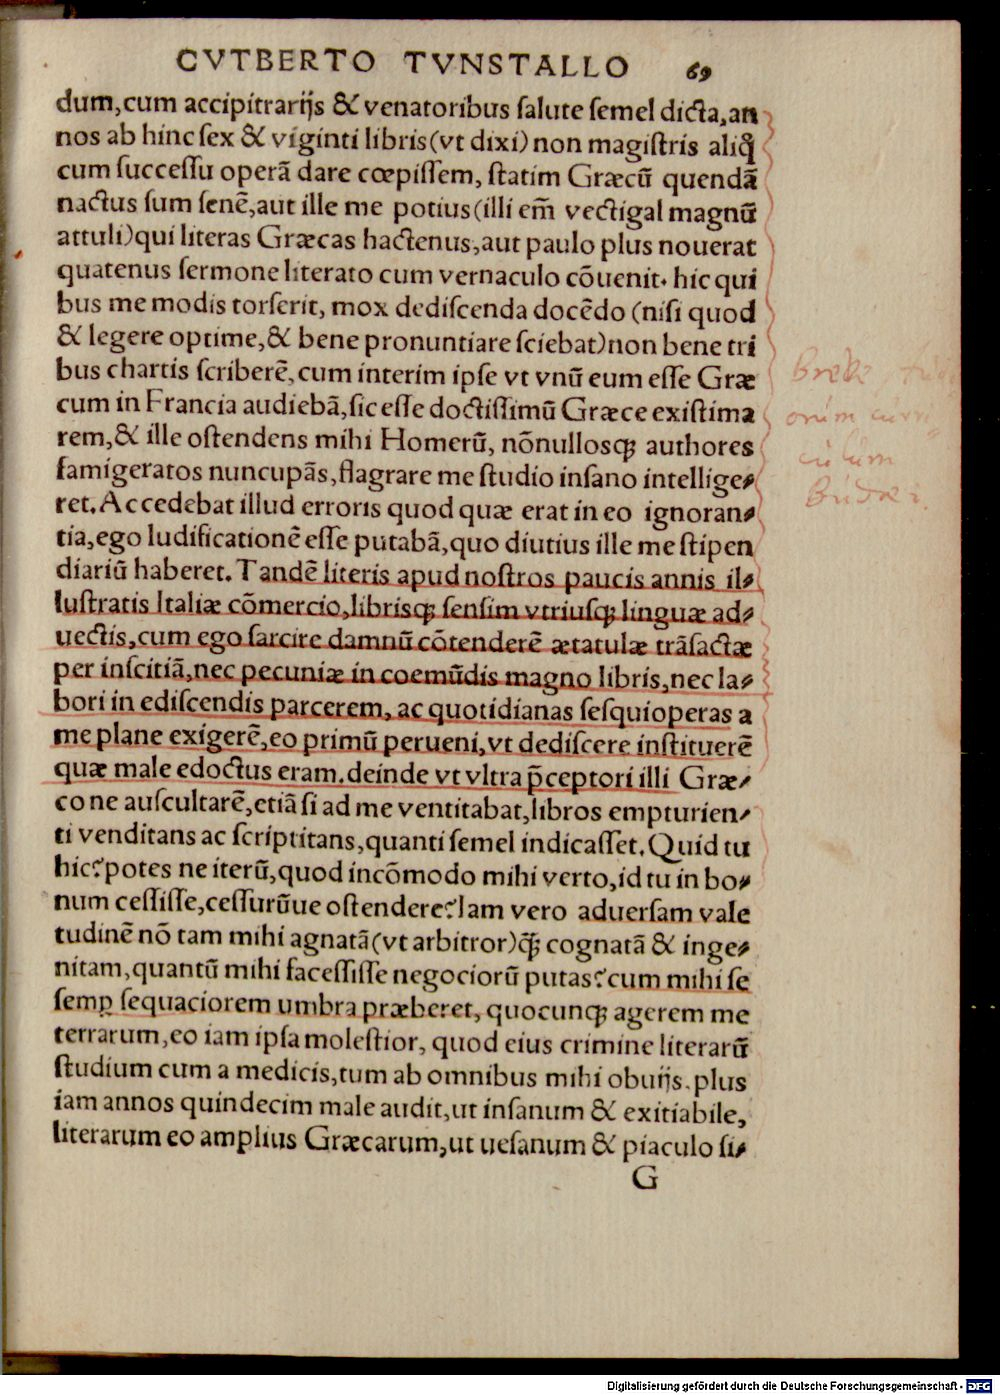 CVTBERTO TVNSTALLO 69
dum,cum accipitrarijs & venatoribus ſalute ſemel dicta,an
nos ab hinc ſex & viginti libris(vt dixi)non magiſtris aliq̃
cum ſucceſſu operã dare cœpiſſem, ſtatim Græcũ quendã
nactus ſum ſenẽ,aut ille me potius(illi em̃ vectigal magnũ
attuli)qui literas Græcas hactenus,aut paulo plus nouerat
quatenus ſermone literato cum vernaculo cõuenit. hic qui
bus me modis torſerit, mox dediſcenda docẽdo (niſi quod
& legere optime,& bene pronuntiare ſciebat)non bene tri
bus chartis ſcriberẽ,cum interim ipſe vt vnũ eum eſſe Græ
cum in Francia audiebã,ſic eſſe doctiſſimũ Græce exiſtima
rem,& ille oſtendens mihi Homerũ, nõnulloſqꝫ authores
famigeratos nuncupãs,flagrare me ſtudio inſano intellige⸗
ret.Accedebat illud erroris quod quæ erat in eo ignoran⸗
tia,ego ludificationẽ eſſe putabã,quo diutius ille me ſtipen
diariũ haberet.Tandẽ literis apud noſtros paucis annis il⸗
luſtratis Italiæ cõmercio,libriſqꝫ ſenſim vtriuſqꝫ linguæ ad⸗
uectis,cum ego ſarcire damnũ cõtenderẽ ætatulæ trãſactæ
per inſcitiã,nec pecuniæ in coemũdis magno libris,nec la⸗
bori in ediſcendis parcerem, ac quotidianas ſeſquioperas a
me plane exigerẽ,eo primũ perueni,vt dediſcere inſtituerẽ
quæ male edoctus eram.deinde vt vltra p̃ceptori illi Græ⸗
co ne auſcultarẽ,etiã ſi ad me ventitabat,libros empturien⸗
ti venditans ac ſcriptitans,quanti ſemel indicaſſet.Quid tu
hic?potes ne iterũ,quod incõmodo mihi verto,id tu in bo⸗
num ceſſiſſe,ceſſurũue oſtendere?Iam vero aduerſam vale
tudinẽ nõ tam mihi agnatã(vt arbitror)q̃ꝫ cognatã & inge⸗
nitam,quantũ mihi faceſſiſſe negociorũ putas?cum mihi ſe
ſemꝑ ſequaciorem umbra præberet, quocunqꝫ agerem me
terrarum,eo iam ipſa moleſtior, quod eius crimine literarũ
ſtudium cum a medicis,tum ab omnibus mihi obuijs.plus
iam annos quindecim male audit,ut inſanum & exitiabile,
literarum eo amplius Græcarum,ut ueſanum & piaculo ſi⸗
G
orum curri
culum
Budæi.
Digitalisierung gefördert durch die Deutsche Forschungsgemeinschaft - DFG